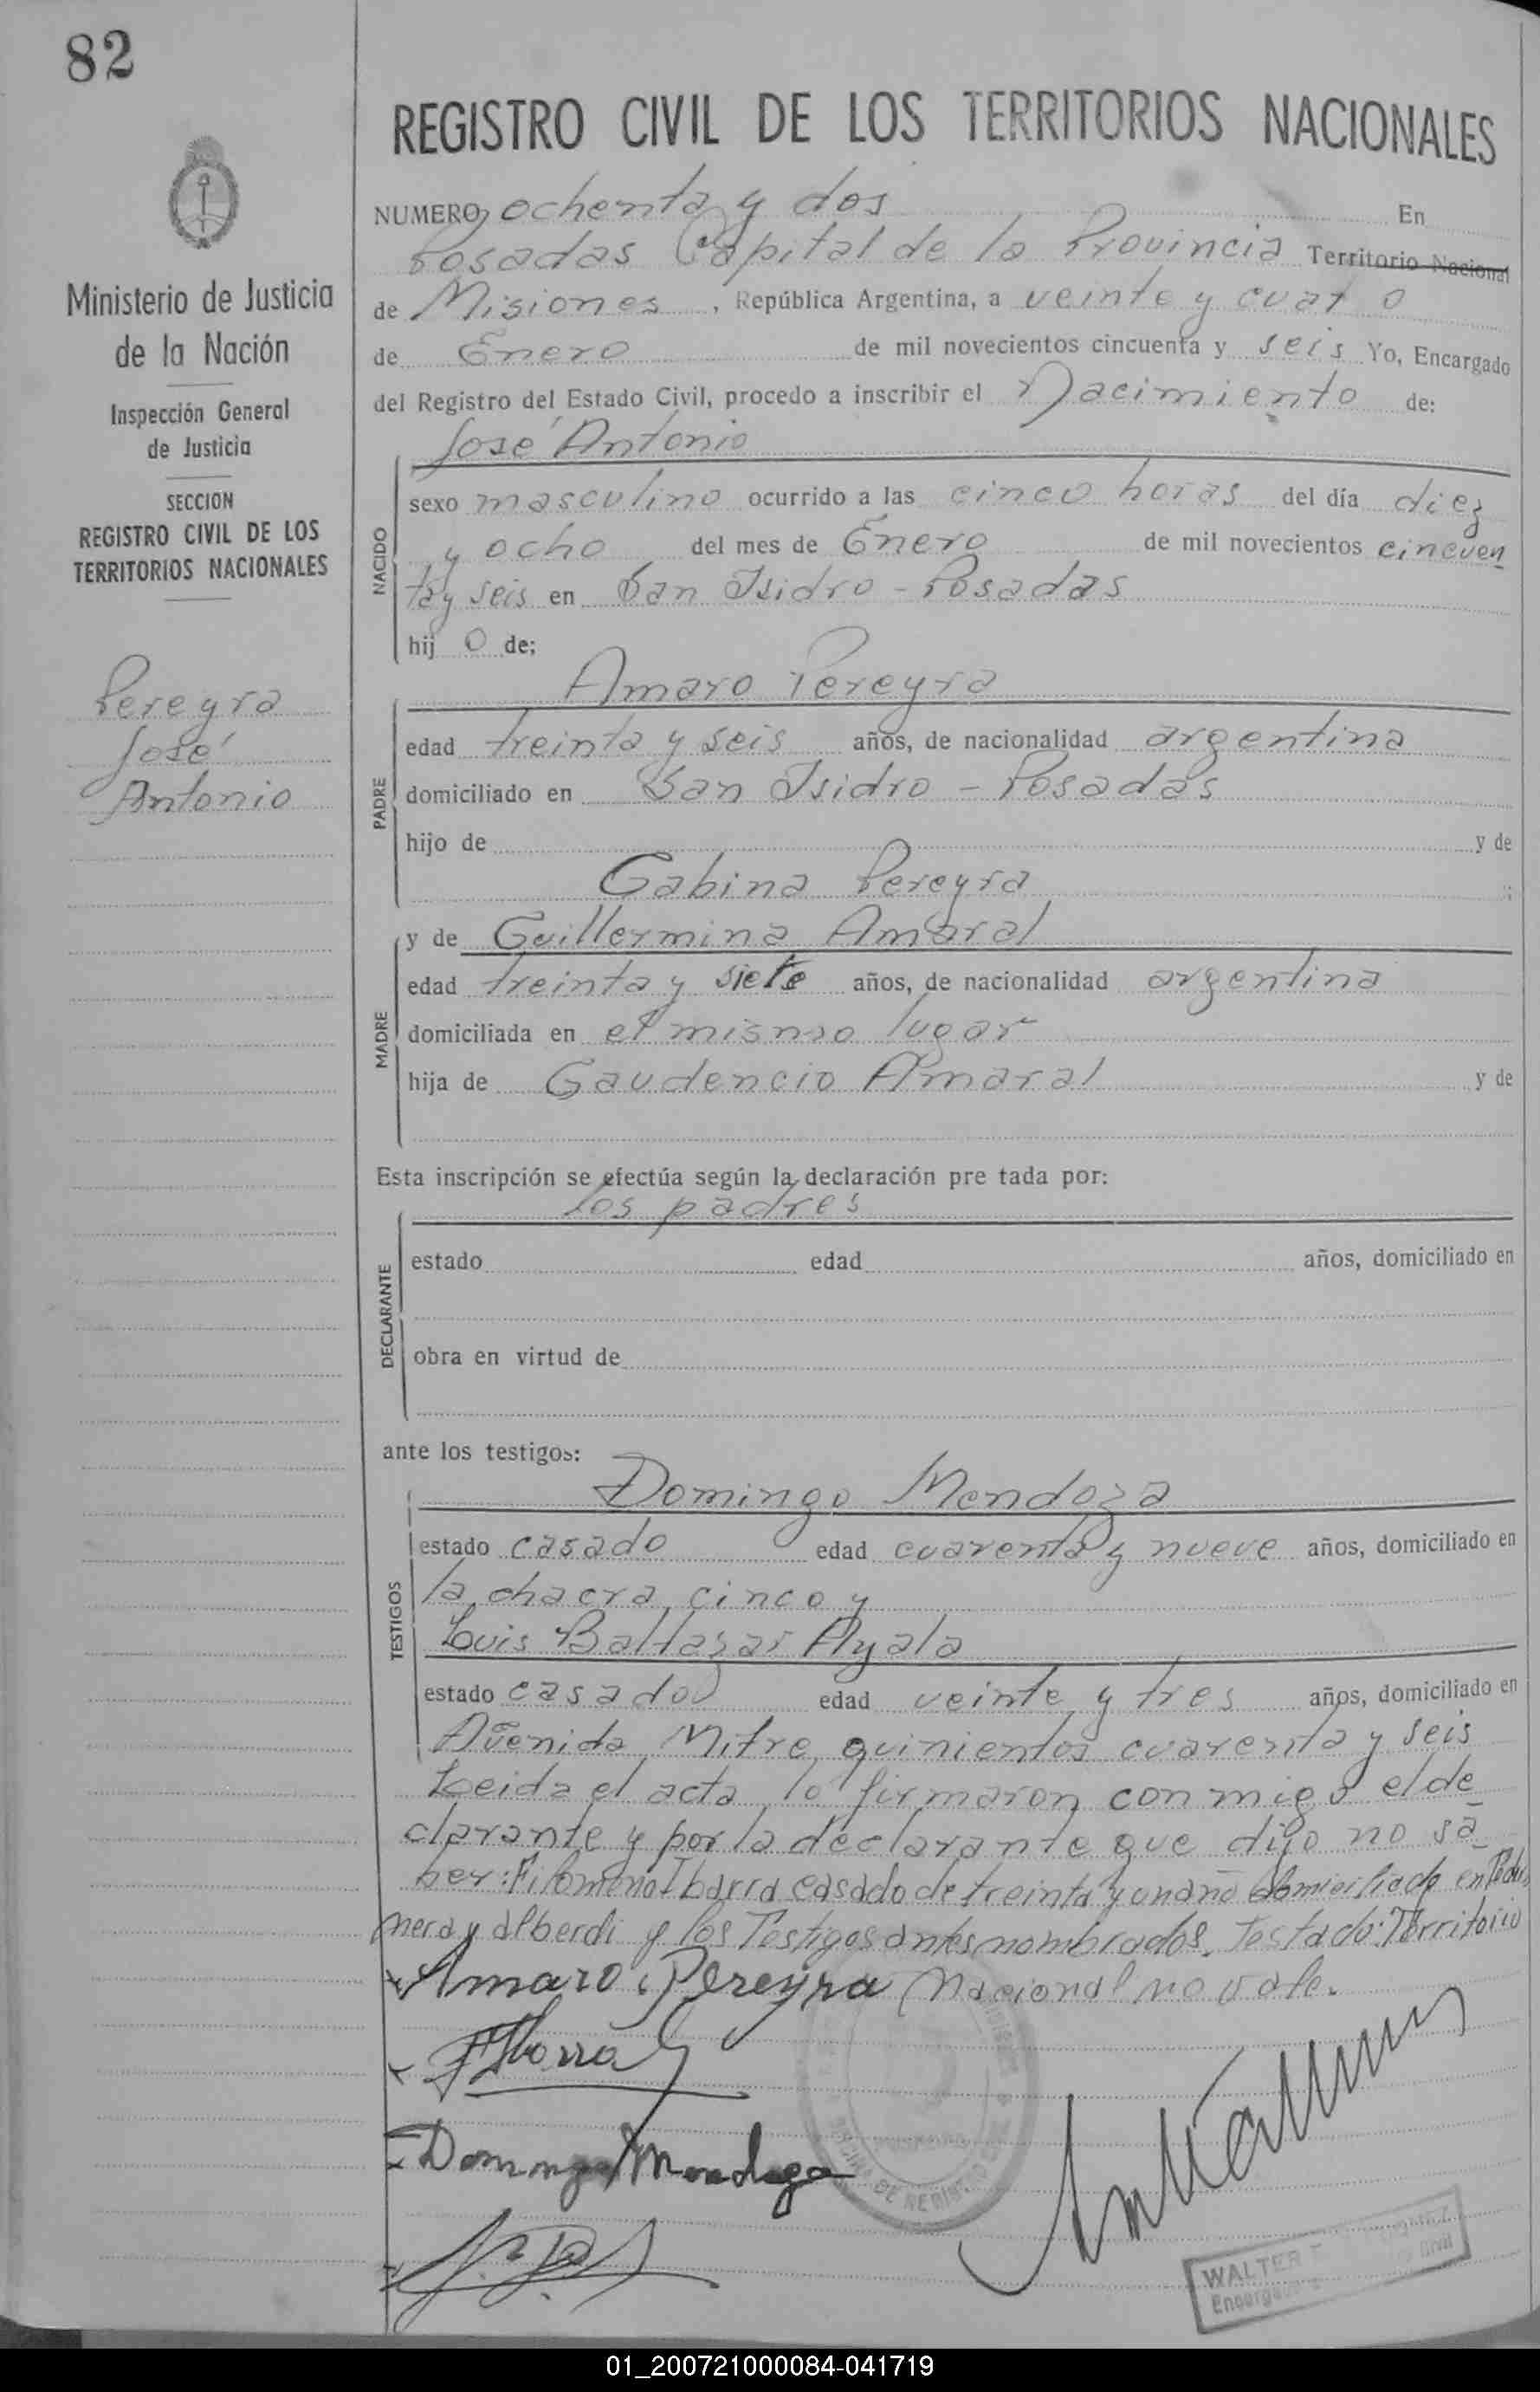 82
REGISTRO CIVIL DE LOS TERRITORIOS NACIONALES
NUMERO ochenta y dos En
Posadas Capital de la Provincia Territorio Nacional
de Misiones, República Argentina, a veinte y cuat o
de Enero de mil novecientos cincuenta y seis Yo, Encargado
del Registro del Estado Civil, procedo a inscribir el Nacimiento de:
José Antonio
sexo masculino ocurrido a las cinco horas del día diez
y ocho del mes de Enero de mil novecientos cincuen
ta y seis en San Isidro - Posadas
hij o de;
NACIDO
Amaro Pereyra
edad treinta y seis años, de nacionalidad argentina
domiciliado en San Isidro - Posadas
hijo de y de
Gabina Pereyra
PADRE
y de Guillermina Amaral
edad treinta y siete años, de nacionalidad argentina
domiciliada en el mismo lugar
hija de Gaudencio Amaral y de
MADRE
Esta inscripción se efectúa según la declaración pre tada por:
los padres
estado edad años, domiciliado en
obra en virtud de
DECLARANTE
ante los testigos:
Domingo Mendoza
estado casado edad cuarenta y nueve años, domiciliado en
la chacra cinco y
Luis Baltazar Ayala
estado casado edad veinte y tres años, domiciliado en
Avenida Mitre quinientos cuarenta y seis
TESTIGOS
Leida el acta lo firmaron conmigo el de
clarante y por la declarante que dijo no sa
ber: Filomeno Ibarra casado de treinta y un año domiciliado en Peder
nera y alberdi y los Testigos antes nombrados. Testado: Territorio
Nacional no vale.
Amaro Pereyra
FIbarra
Domingo Mendoza
WALTER
Encargado
Ministerio de Justicia
de la Nación
Inspección General
de Justicia
SECCION
REGISTRO CIVIL DE LOS
TERRITORIOS NACIONALES
Pereyra
José
Antonio
01_200721000084-041719